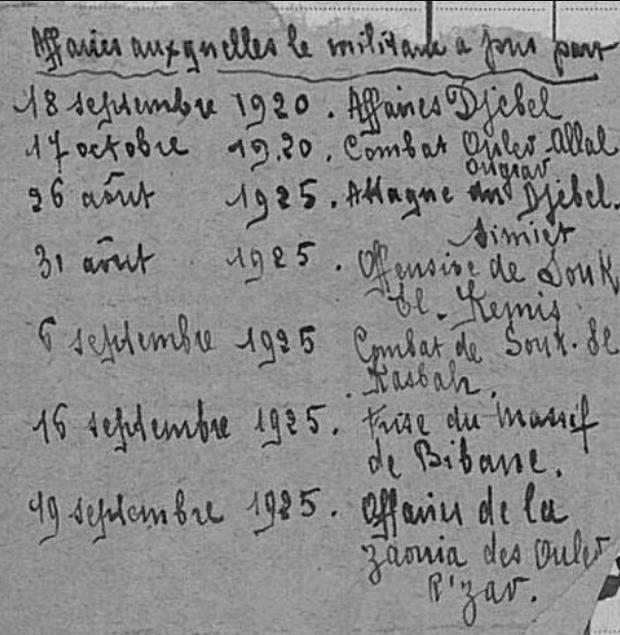 Affaires auxquelles le militaire a pris part
18 septembre 1920. Affaires Djebel
17 octobre 1920. Combat Ouled-Allal
26 août 1925. Attaque du Djebel.
31 août 1925. Offensive de Souk
El-Kemis
6 septembre 1925 Combat de Souk-El
Kasbah.
16 septembre 1925. Prise du Massif
de Bibane.
19 septembre 1925. Affaires de la
zaouia des Ouled
R'zav.